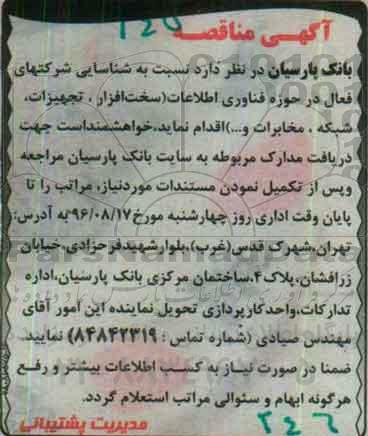 آگهی مناقصه
بانک پارسیان در نظر دارد نسبت به شناسایی شرکتهای
فعال در حوزه فناوری اطلاعات(سخت‌افزار ، تجهیزات،
شبکه ، مخابرات و...)اقدام نماید،خواهشمنداست جهت
دریافت مدارک مربوطه به سایت بانک پارسیان مراجعه
وپس از تکمیل نمودن مستندات موردنیاز، مراتب را تا
پایان وقت اداری روز چهارشنبه مورخ ۹۶/۰۸/۱۷به آدرس:
تهران،شهرک قدس(غرب)،بلوارشهیدفرحزادی،خیابان
زرافشان،پلاک۴،ساختمان مرکزی بانک پارسیان،اداره
تدارکات،واحدکارپردازی تحویل نماینده این امور آقای
مهندس صیادی (شماره تماس : ۸۴۸۴۲۳۱۹) نمایید.
ضمنا در صورت نیاز به کسب اطلاعات بیشتر و رفع
هرگونه ابهام و سئوالی مراتب استعلام گردد.
مدیریت پشتیبانی
۲۴۶